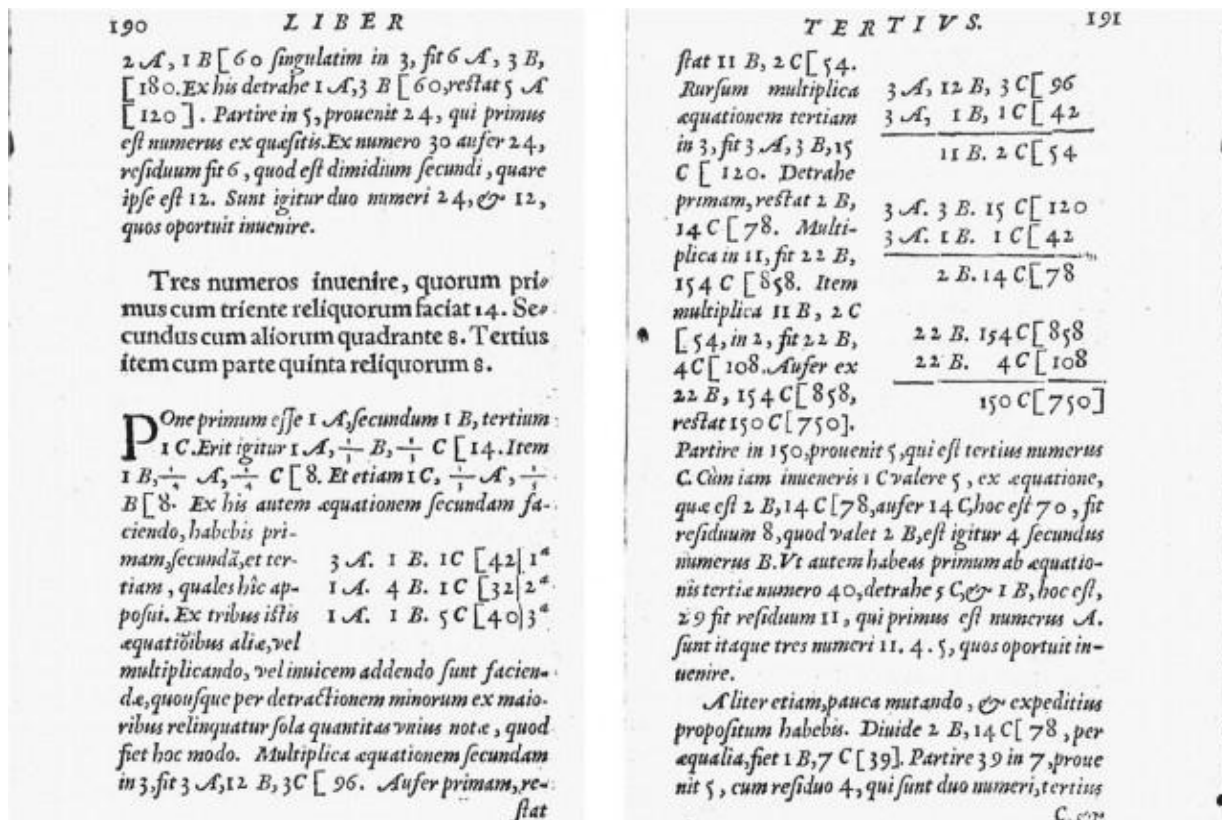 190 LIBER
2 A, 1 B [60 ſingulatim in 3, fit 6 A, 3 B,
[180. Ex his detrahe 1 A, 3 B [60, reſtat 5 A
[120]. Partire in 5, prouenit 24, qui primus
eſt numerus ex quæſitis. Ex numero 30 aufer 24,
reſiduum fit 6, quod eſt dimidium ſecundi, quare
ipſe eſt 12. Sunt igitur duo numeri 24, & 12,
quos oportuit inuenire.
Tres numeros inuenire, quorum pri-
mus cum triente reliquorum faciat 14. Se-
cundus cum aliorum quadrante 8. Tertius
item cum parte quinta reliquorum 8.
POne primum eſſe 1 A, ſecundum 1 B, tertium
1 C. Erit igitur 1 A, 1/3 B, 1/3 C [14. Item
1 B, 1/4 A, 1/4 C [8. Et etiam 1 C, 1/5 A, 1/5
B [8. Ex his autem æquationem ſecundam fa-
ciendo, habebis pri-
mam, ſecundã, et ter-
tiam, quales hîc ap-
poſui. Ex tribus iſtis
æquatiõibus aliæ, vel
3 A. 1 B. 1C [42| 1ª
1 A. 4 B. 1C [32| 2ª
1 A. 1 B. 5C [40| 3ª
multiplicando, vel inuicem addendo ſunt facien-
dæ, quouſque per detractionem minorum ex maio-
ribus relinquatur ſola quantitas vnius notæ, quod
fiet hoc modo. Multiplica æquationem ſecundam
in 3, fit 3 A, 12 B, 3C [96. Aufer primam, re-
ſtat
TERTIVS. 191
ſtat 11 B, 2 C [54.
Rurſum multiplica
æquationem tertiam
in 3, fit 3 A, 3 B, 15
C [120. Detrahe
primam, reſtat 2 B,
14 C [78. Multi-
plica in 11, fit 22 B,
154 C [858. Item
multiplica 11 B, 2 C
[54, in 2, fit 22 B,
4 C [108. Aufer ex
22 B, 154 C [858,
reſtat 150 C [750].
3 A, 12 B, 3 C [96
3 A, 1 B, 1 C [42
11 B. 2 C [54
3 A. 3 B. 15 C [120
3 A. 1 B. 1 C [42
2 B. 14 C [78
22 B. 154 C [858
22 B. 4 C [108
150 C [750]
Partire in 150, prouenit 5, qui eſt tertius numerus
C. Cùm iam inueneris 1 C valere 5, ex æquatione,
quæ eſt 2 B, 14 C [78, aufer 14 C, hoc eſt 70, fit
reſiduum 8, quod valet 2 B, eſt igitur 4 ſecundus
numerus B. Vt autem habeas primum ab æquatio-
nis tertiæ numero 40, detrahe 5 C, & 1 B, hoc eſt,
29 fit reſiduum 11, qui primus eſt numerus A.
ſunt itaque tres numeri 11. 4. 5, quos oportuit in-
uenire.
Aliter etiam, pauca mutando, & expeditius
propoſitum habebis. Diuide 2 B, 14 C [78, per
æqualia, fiet 1 B, 7 C [39]. Partire 39 in 7, proue
nit 5, cum reſiduo 4, qui ſunt duo numeri, tertius
C. &